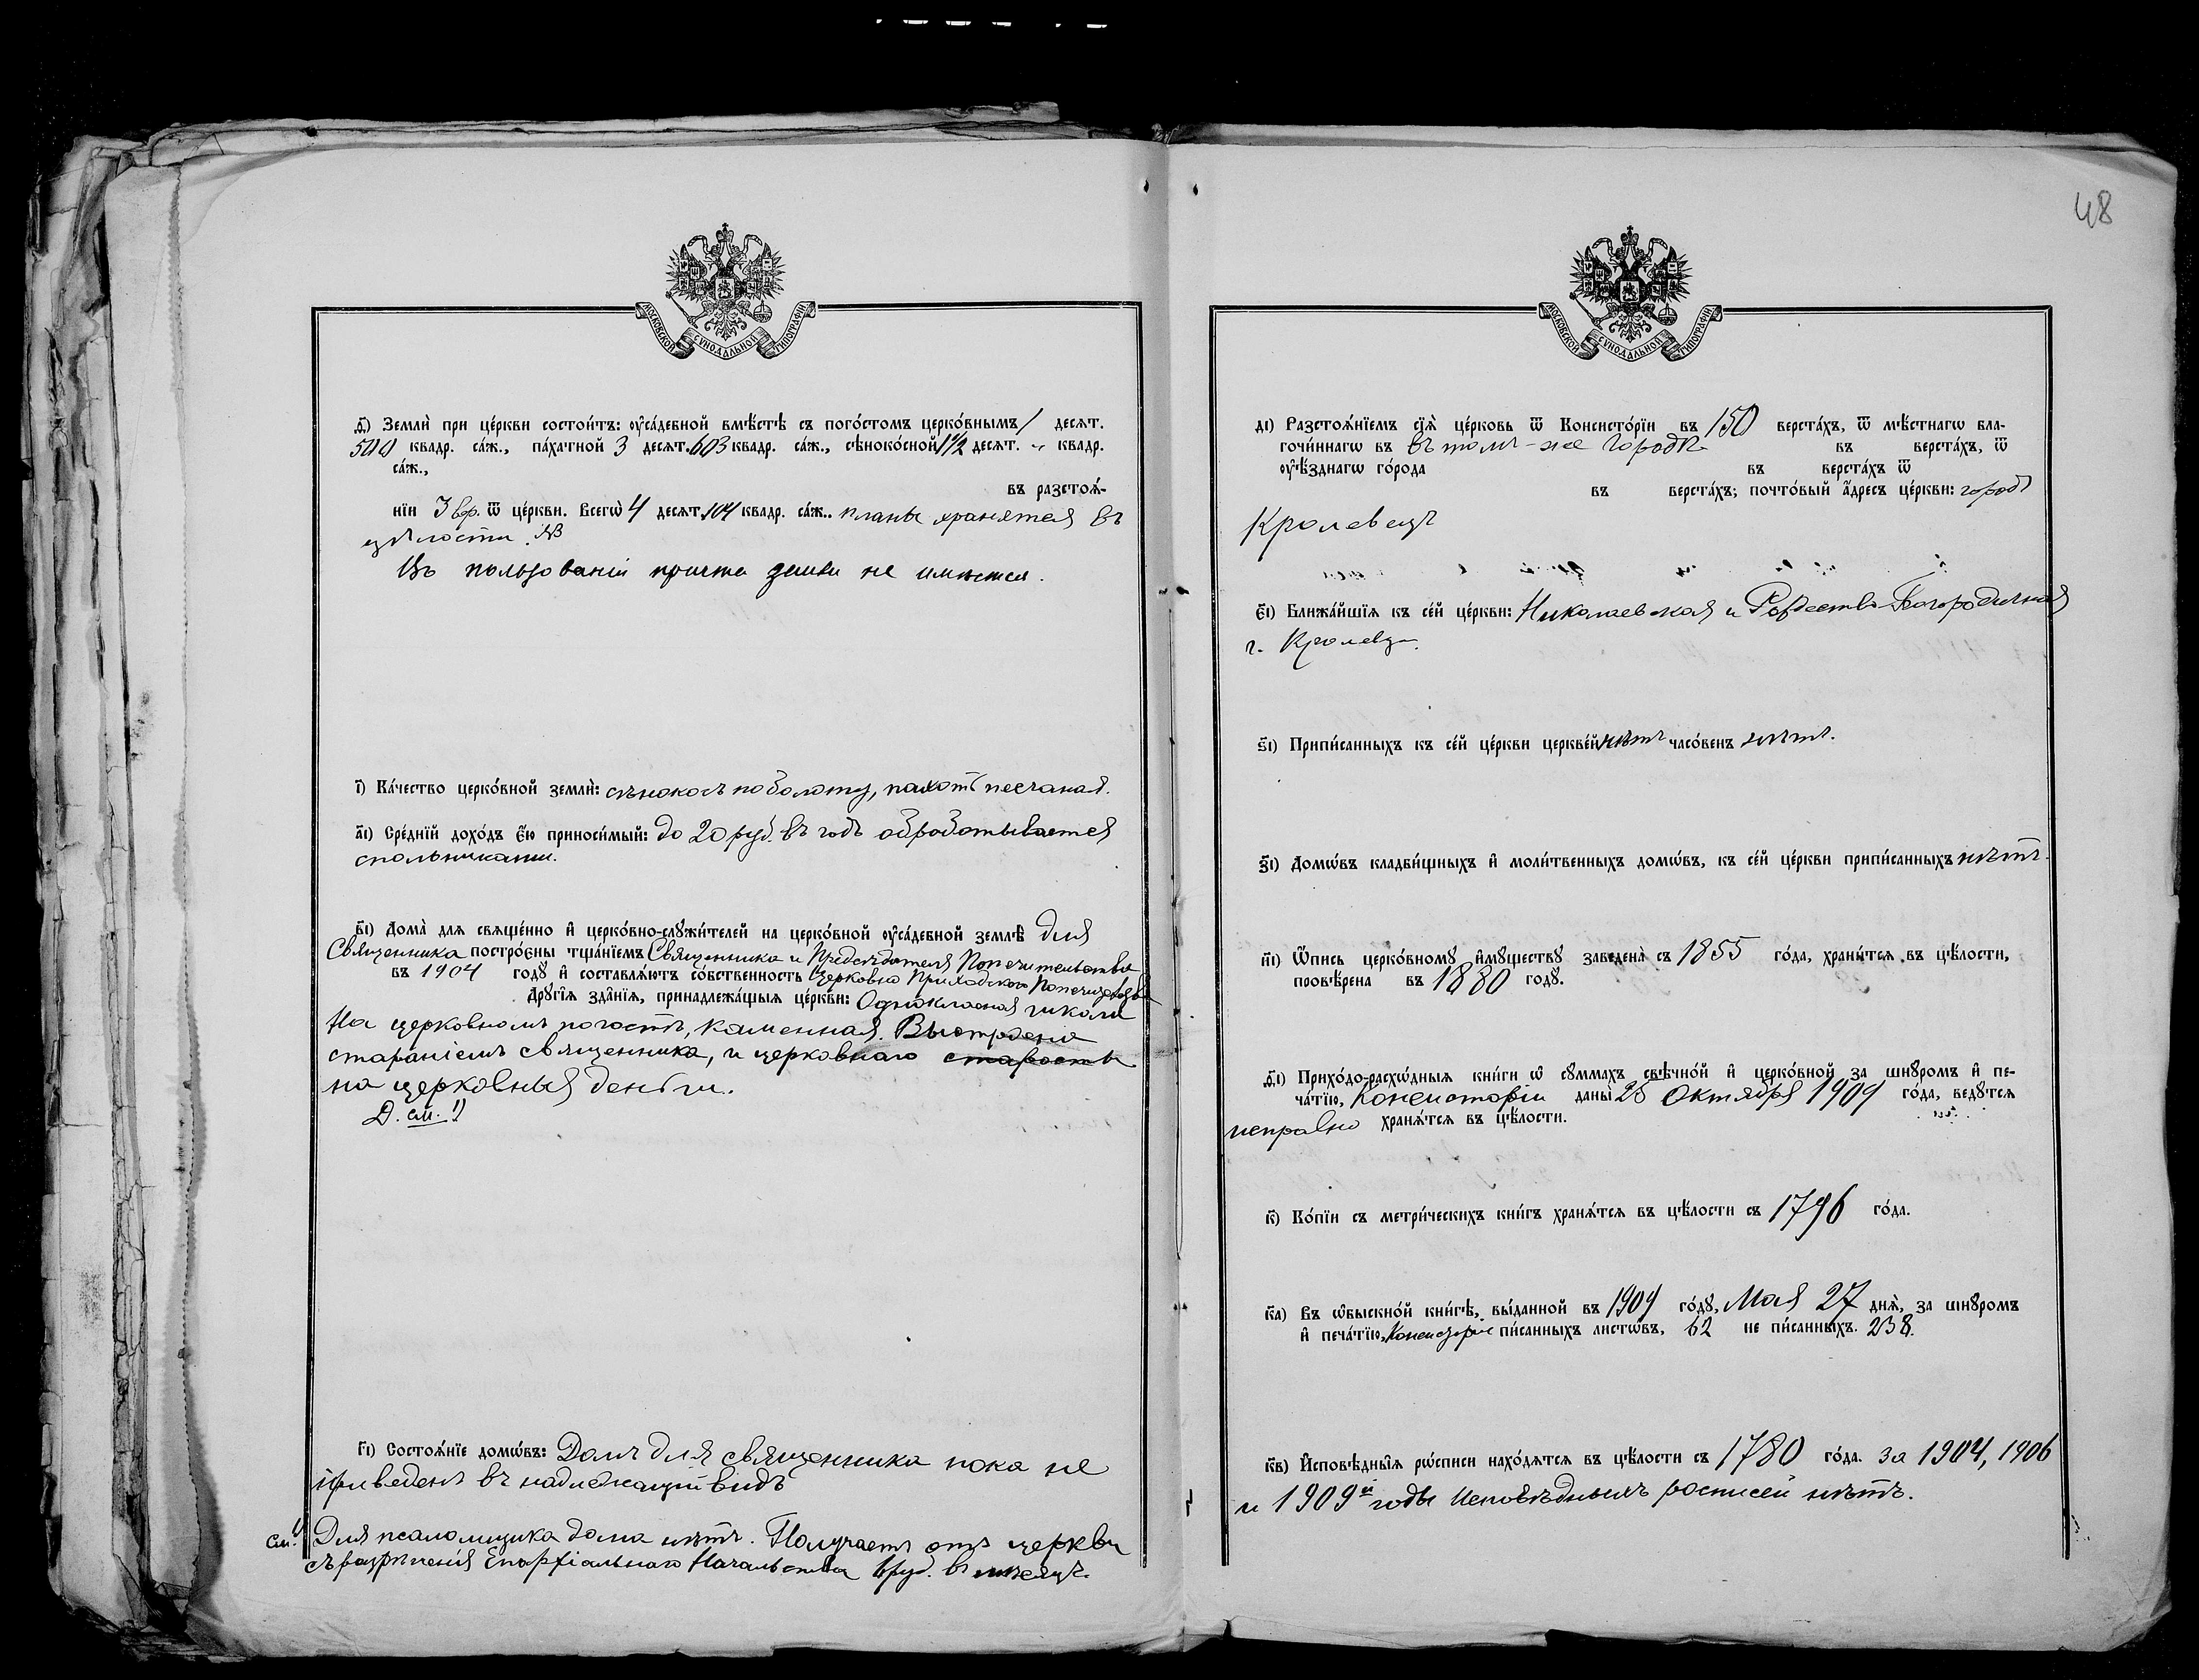 48
МОСКОВСКОЙ СѴНОДАЛЬНОЙ ТИПОГРАФІИ
ѳ҃) Землѝ при це́ркви состои́тъ: ᲂу҆са́дебной вмѣ́стѣ съ пого́стомъ церко́внымъ 1 десят.
500 квадр. са́ж., па́хатной 3 десят. 603 квадр. са́ж., сѣноко́сной 1½ десят. " квадр.
са́ж.,
въ разстоѧ́-
нїи 3 вер. ѿ це́ркви. Всегѡ̀ 4 десят. 104 квадр. са́ж.. планы хранятся въ
цѣлости. NB
Въ пользованіи причта земли не имѣется.
і҃) Ка́чество церко́вной землѝ: сѣнокосъ по болоту, пахоть песчаная.
а҃і) Сре́днїй дохо́дъ є҆́ю приноси́мый: до 20 руб. въ годъ обработывается
спольниками.
в҃і) Дома̀ для свяще́нно и҆ церко́вно-слꙋжи́телей на церко́вной ᲂу҆са́дебной землѣ̀ для
Священника постро́єны тща́нїемъ Священника и Предсѣдателя Попечительства
въ 1904 годꙋ̀ и҆ составлѧ́ютъ со́бственность Церковно Приходского Попечительства
Дрꙋгі̑я зда̑нїя, принадлежа́щыя це́ркви: Одноклассная школа
На церковномъ погостѣ, каменная. Выстроена
стараніемъ священника, и церковнаго старосты
на церковныя деньги.
Д. см. 1)
г҃і) Состоѧ́нїе домѡ́въ: Домъ для священника пока не
приведенъ въ надлежащій видъ
см. 1) Для псаломщика дома нѣтъ. Получаетъ отъ церкви
съ разрѣшенія Епархіальнаго Начальства руб. въ мѣсяцъ.
МОСКОВСКОЙ СѴНОДАЛЬНОЙ ТИПОГРАФІИ
д҃і) Разстоѧ́нїемъ сїѧ̀ це́рковь ѿ Консисто́рїи въ 150 верста́хъ, ѿ мѣ́стнагѡ бла-
гочи́ннагѡ въ въ томъ-же городѣ въ верста́хъ, ѿ
ᲂу҆ѣ́зднагѡ го́рода въ верста́хъ ѿ
въ верста́хъ; почто́вый а҆́дресъ це́ркви: городъ
Кролевецъ
є҃і) Ближа́йшїя къ се́й це́ркви: Николаевская и Рождество-Богородичная
г. Кролевца.
ѕ҃і) Припи́санныхъ къ се́й це́ркви церкве́й нѣтъ часо́венъ нѣтъ.
з҃і) Домѡ́въ кладби́щныхъ и҆ моли́твенныхъ домѡ́въ, къ се́й це́ркви припи́санныхъ нѣтъ.
и҃і) Ѻ҆́пись церко́вномꙋ и҆мꙋ́ществꙋ заведена̀ съ 1855 го́да, храни́тся въ цѣ́лости,
провѣ́рена въ 1880 годꙋ̀.
ѳ҃і) Прихо́до-расхѡ́дныя кни́ги ѡ҆ сꙋ́ммахъ свѣчно́й и҆ церко́вной за шнꙋро́мъ и҆ пе-
ча́тїю, Консисторіи даны̀ 25 Октября 1909 го́да, ведꙋ́тся
исправно хранѧ́тся въ цѣ́лости.
к҃) Ко́пїи съ метри́ческихъ кни́гъ хранѧ́тся въ цѣ́лости съ 1796 го́да.
к҃а) Въ ѡ҆быскно́й кни́гѣ, вы́данной въ 1909 го́дꙋ, Мая 27 днѧ̀, за шнꙋро́мъ
и҆ печа́тїю, Консисторіи пи́санныхъ листѡ́въ, 62 не пи́санныхъ. 238.
к҃в) И҆сповѣ́дныя рѡ́списи нахо́дятся въ цѣ́лости съ 1780 го́да. За 1904, 1906
и 1909й годы Исповѣдныхъ росписей нѣтъ.